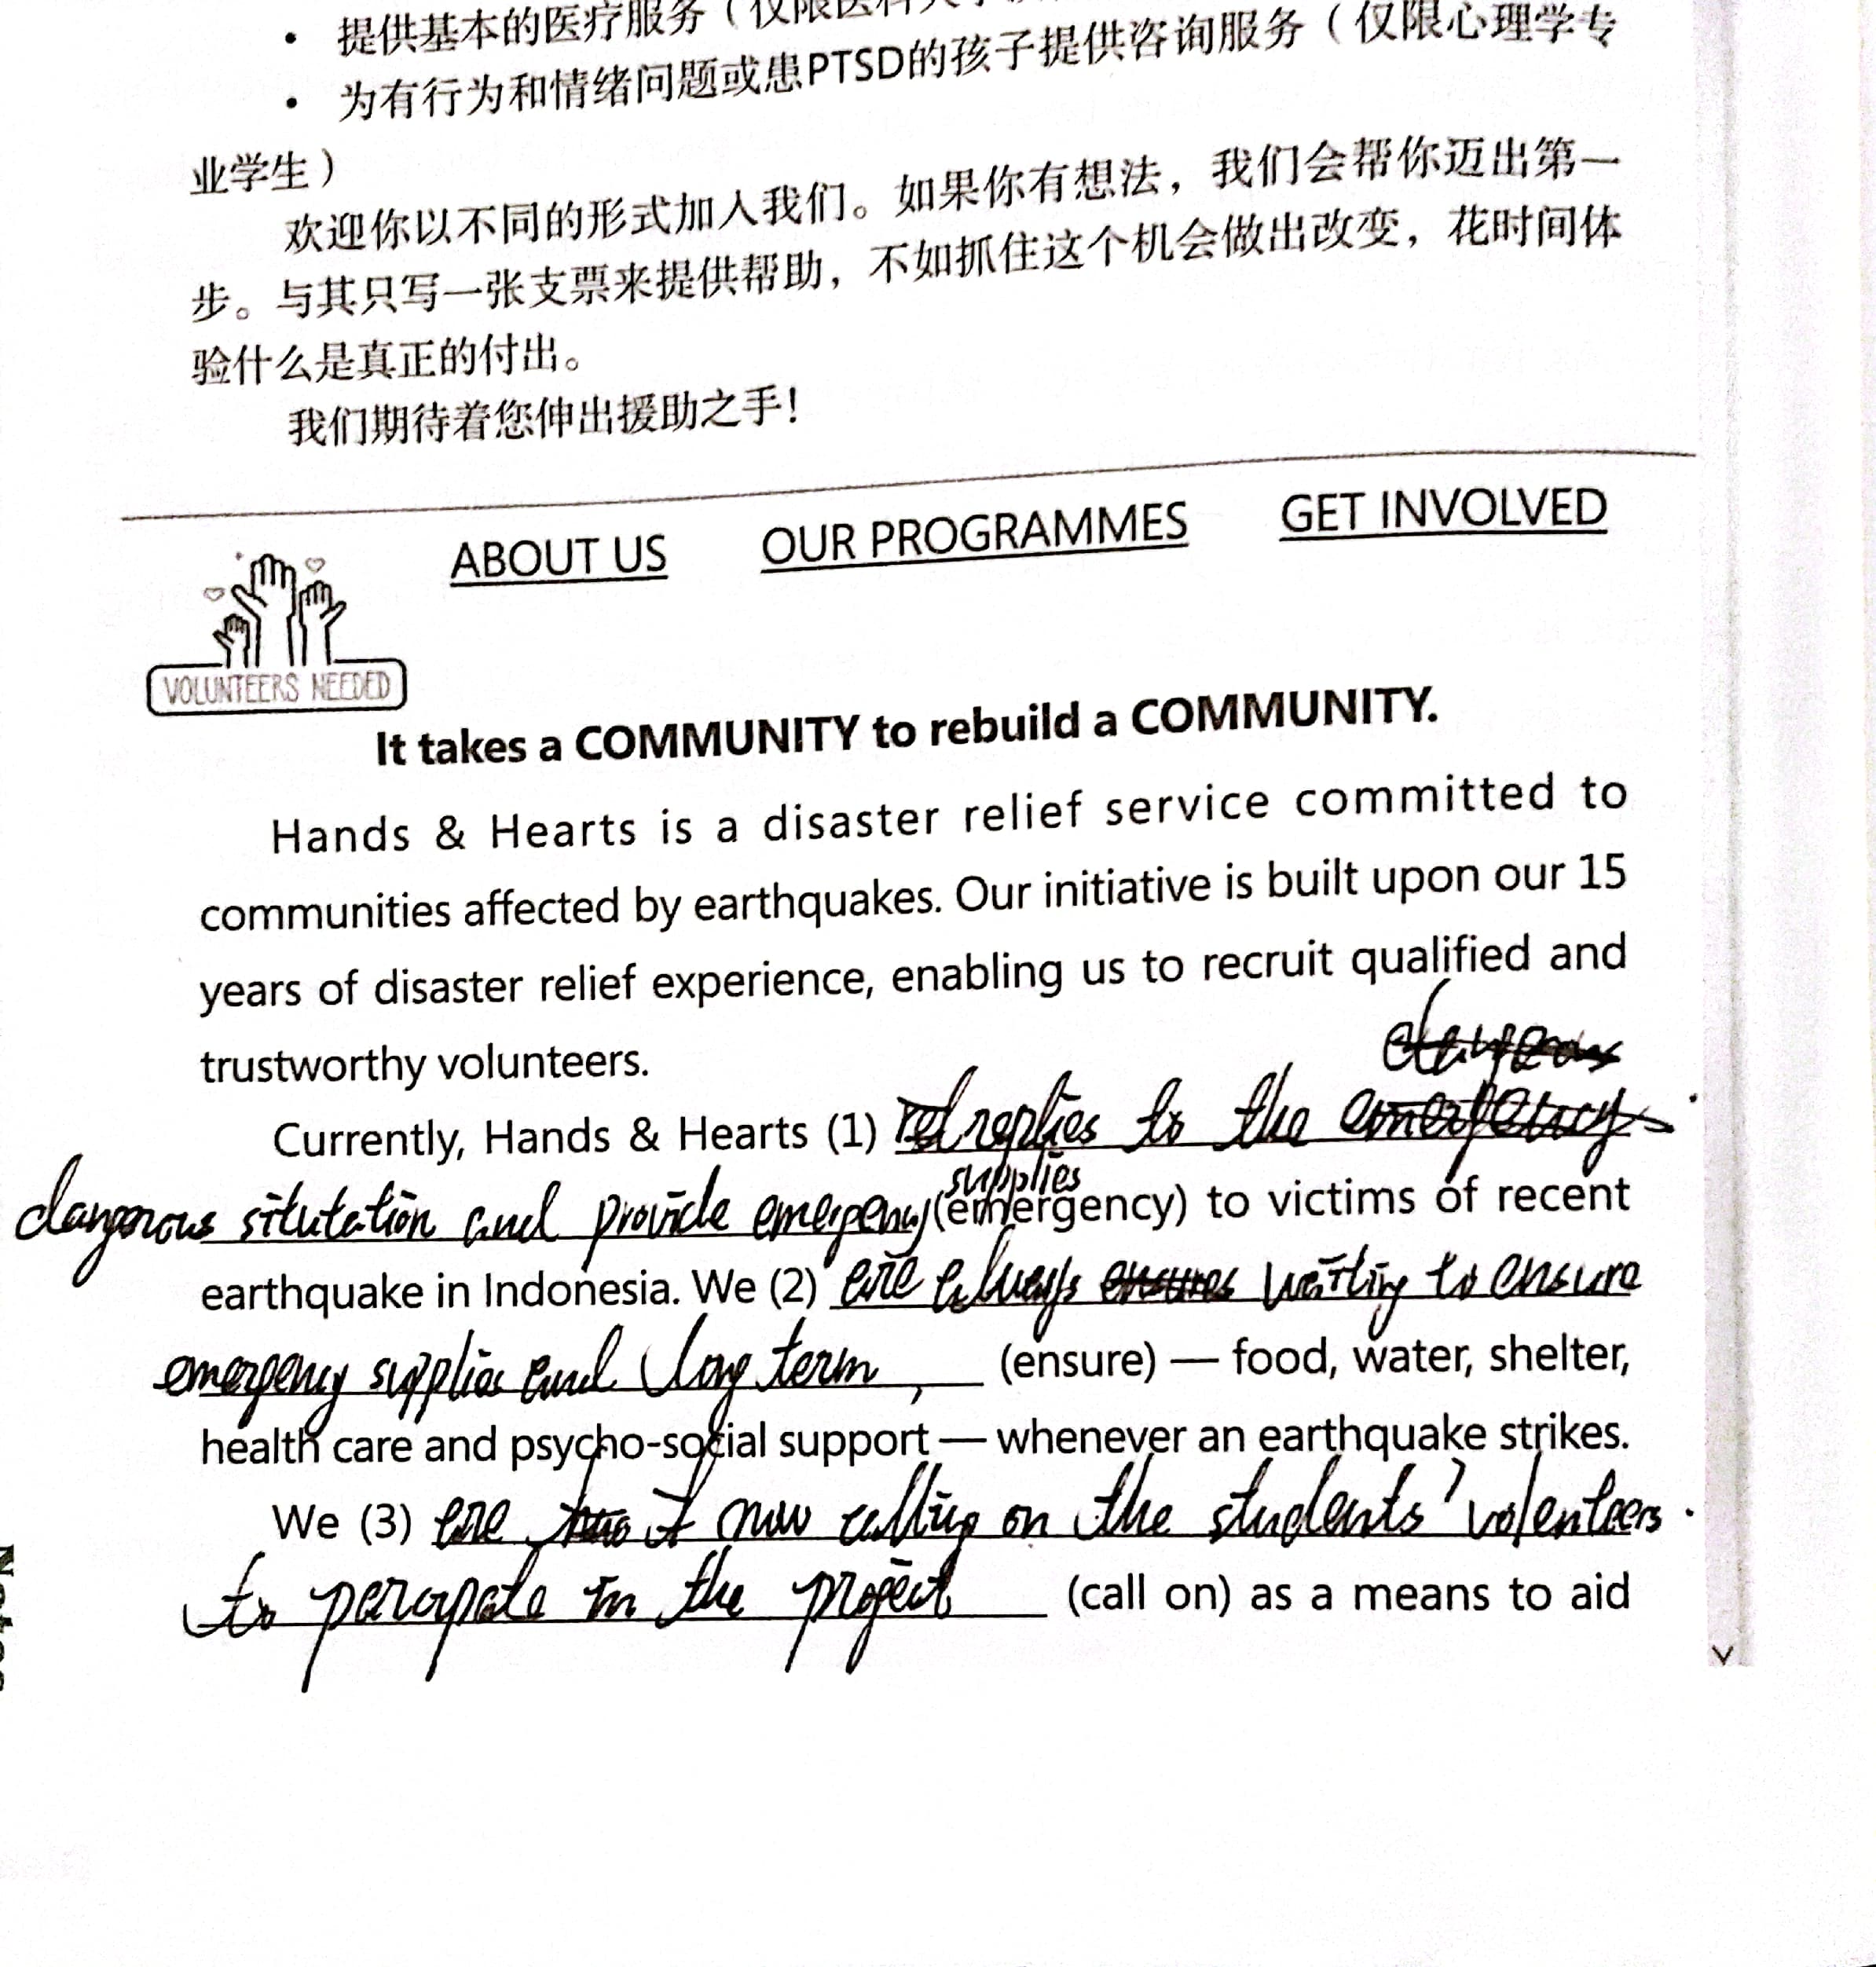 • 提供基本的医疗服务（仅限医科大学
• 为有行为和情绪问题或患PTSD的孩子提供咨询服务（仅限心理学专
业学生）
欢迎你以不同的形式加入我们。如果你有想法，我们会帮你迈出第一
步。与其只写一张支票来提供帮助，不如抓住这个机会做出改变，花时间体
验什么是真正的付出。
我们期待着您伸出援助之手！
ABOUT US OUR PROGRAMMES GET INVOLVED
VOLUNTEERS NEEDED
It takes a COMMUNITY to rebuild a COMMUNITY.
Hands & Hearts is a disaster relief service committed to
communities affected by earthquakes. Our initiative is built upon our 15
years of disaster relief experience, enabling us to recruit qualified and
trustworthy volunteers.
Currently, Hands & Hearts (1) replies to the emergency
supplies
dangorous situtation and provide emergency (emergency) to victims of recent
earthquake in Indonesia. We (2) are always ensures waiting to ensure
emergency supplies and long term, (ensure) — food, water, shelter,
health care and psycho-social support — whenever an earthquake strikes.
We (3) are now calling on the students' volenteers.
to parcipate in the project (call on) as a means to aid
Notes